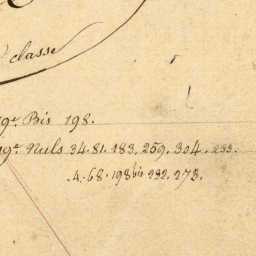 classe
9.os Bis 198.
9.os Nuls 34. 81. 183. 259. 304. 233.
4. 68. 198 bis 232. 273.